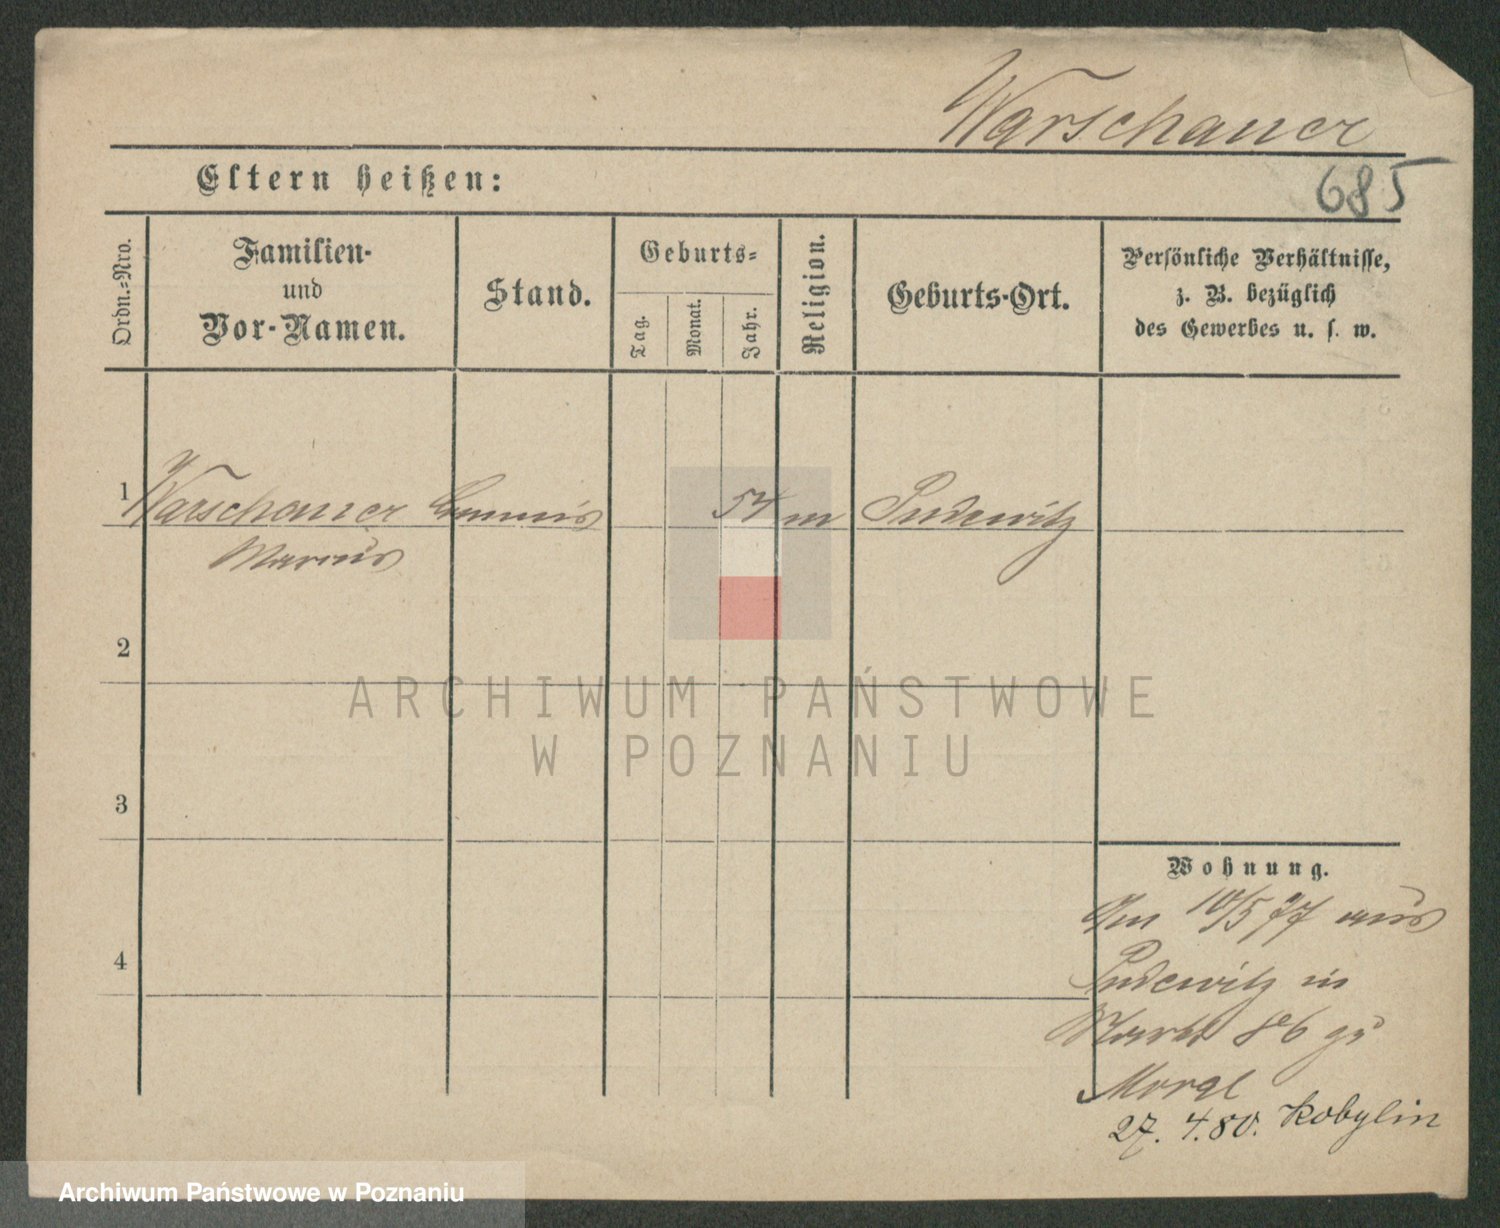 Warschauer
Eltern heißen:
685
Ordn.-Nro.
Familien-
und
Vor-Namen.
Stand.
Geburts-
Tag.
Monat.
Jahr.
Religion.
Geburts-Ort.
Persönliche Verhältnisse,
z. B. bezüglich
des Gewerbes u. s. w.
1 Warschauer Commis 54 m Pudewitz
Marcus
2
ARCHIWUM PAŃSTWOWE
W POZNANIU
3
Wohnung.
Am 10/5 77 aus
4
Pudewitz in
Markt 86
Moral
27. 4. 80. Kobylin
Archiwum Państwowe w Poznaniu